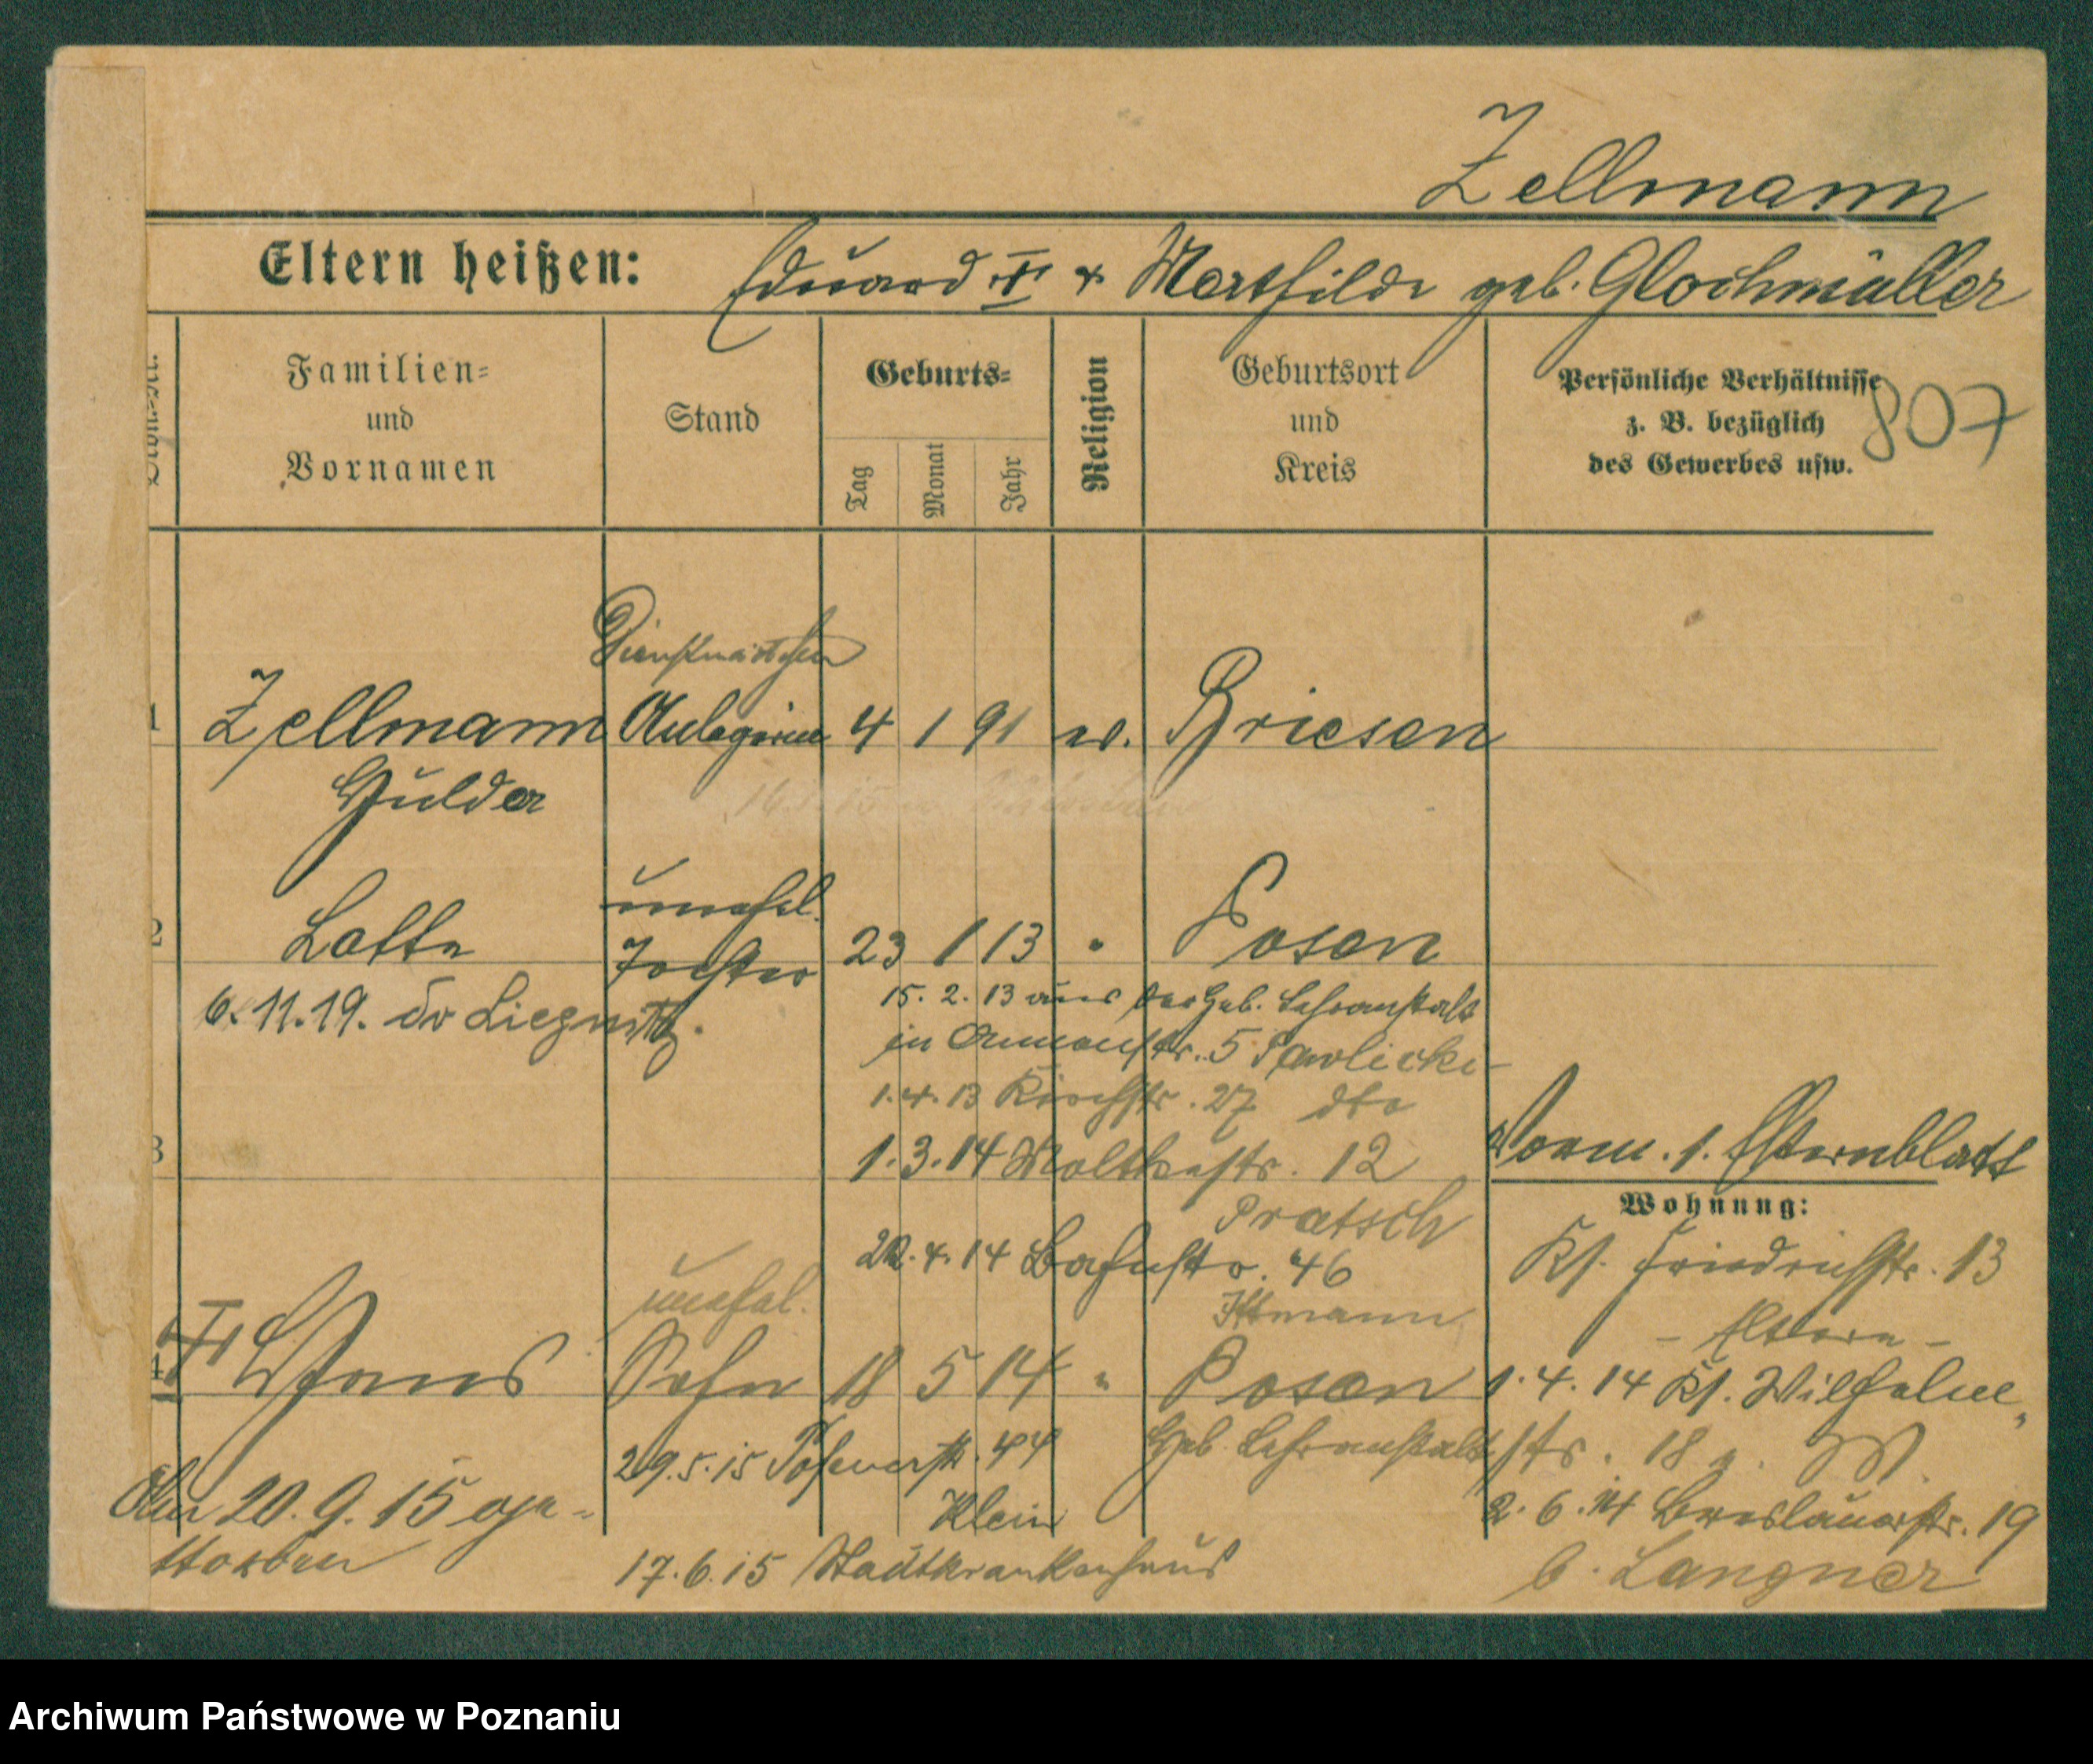 Zellmann
Eltern heißen: Eduard † & Mathilde geb. Glochmüller
Familien=
und
Vornamen
Stand
Geburts=
Tag
Monat
Jahr
Religion
Geburtsort
und
Kreis
Persönliche Verhältnisse
z. B. bezüglich
des Gewerbes usw.
807
Dienstmädchen
1 Zellmann 4 1 91 ev. Briesen
Hulda
unehel.
2 Lotte Tochter 23 1 13 " Posen
6.11.19. Liegnitz.
15. 2. 13 aus der Heb. Lehranstalt
in Str. 5 Pawlicki
1.4.13 Kirchstr. 27 dto
3
1.3.14 Moltkestr. 12
Pratsch
22.4.14 Bahnstr. 46
Ittmann
Vorm. 1. Elternblatt
Wohnung:
Kl. Friedrichstr. 13
- Eltern -
unehel.
4 † Hans Sohn 18 5 14 " Posen
Heb. Lehranstalt
1.4.14 Kl. Wilhelm
str. 18
2.6.14 Breslauerstr. 19
b. Langner
29.5.15 Posenerstr. 44
Klein
17.6.15 Stadtkrankenhaus
Am 20.9.15 ge=
storben
Archiwum Państwowe w Poznaniu